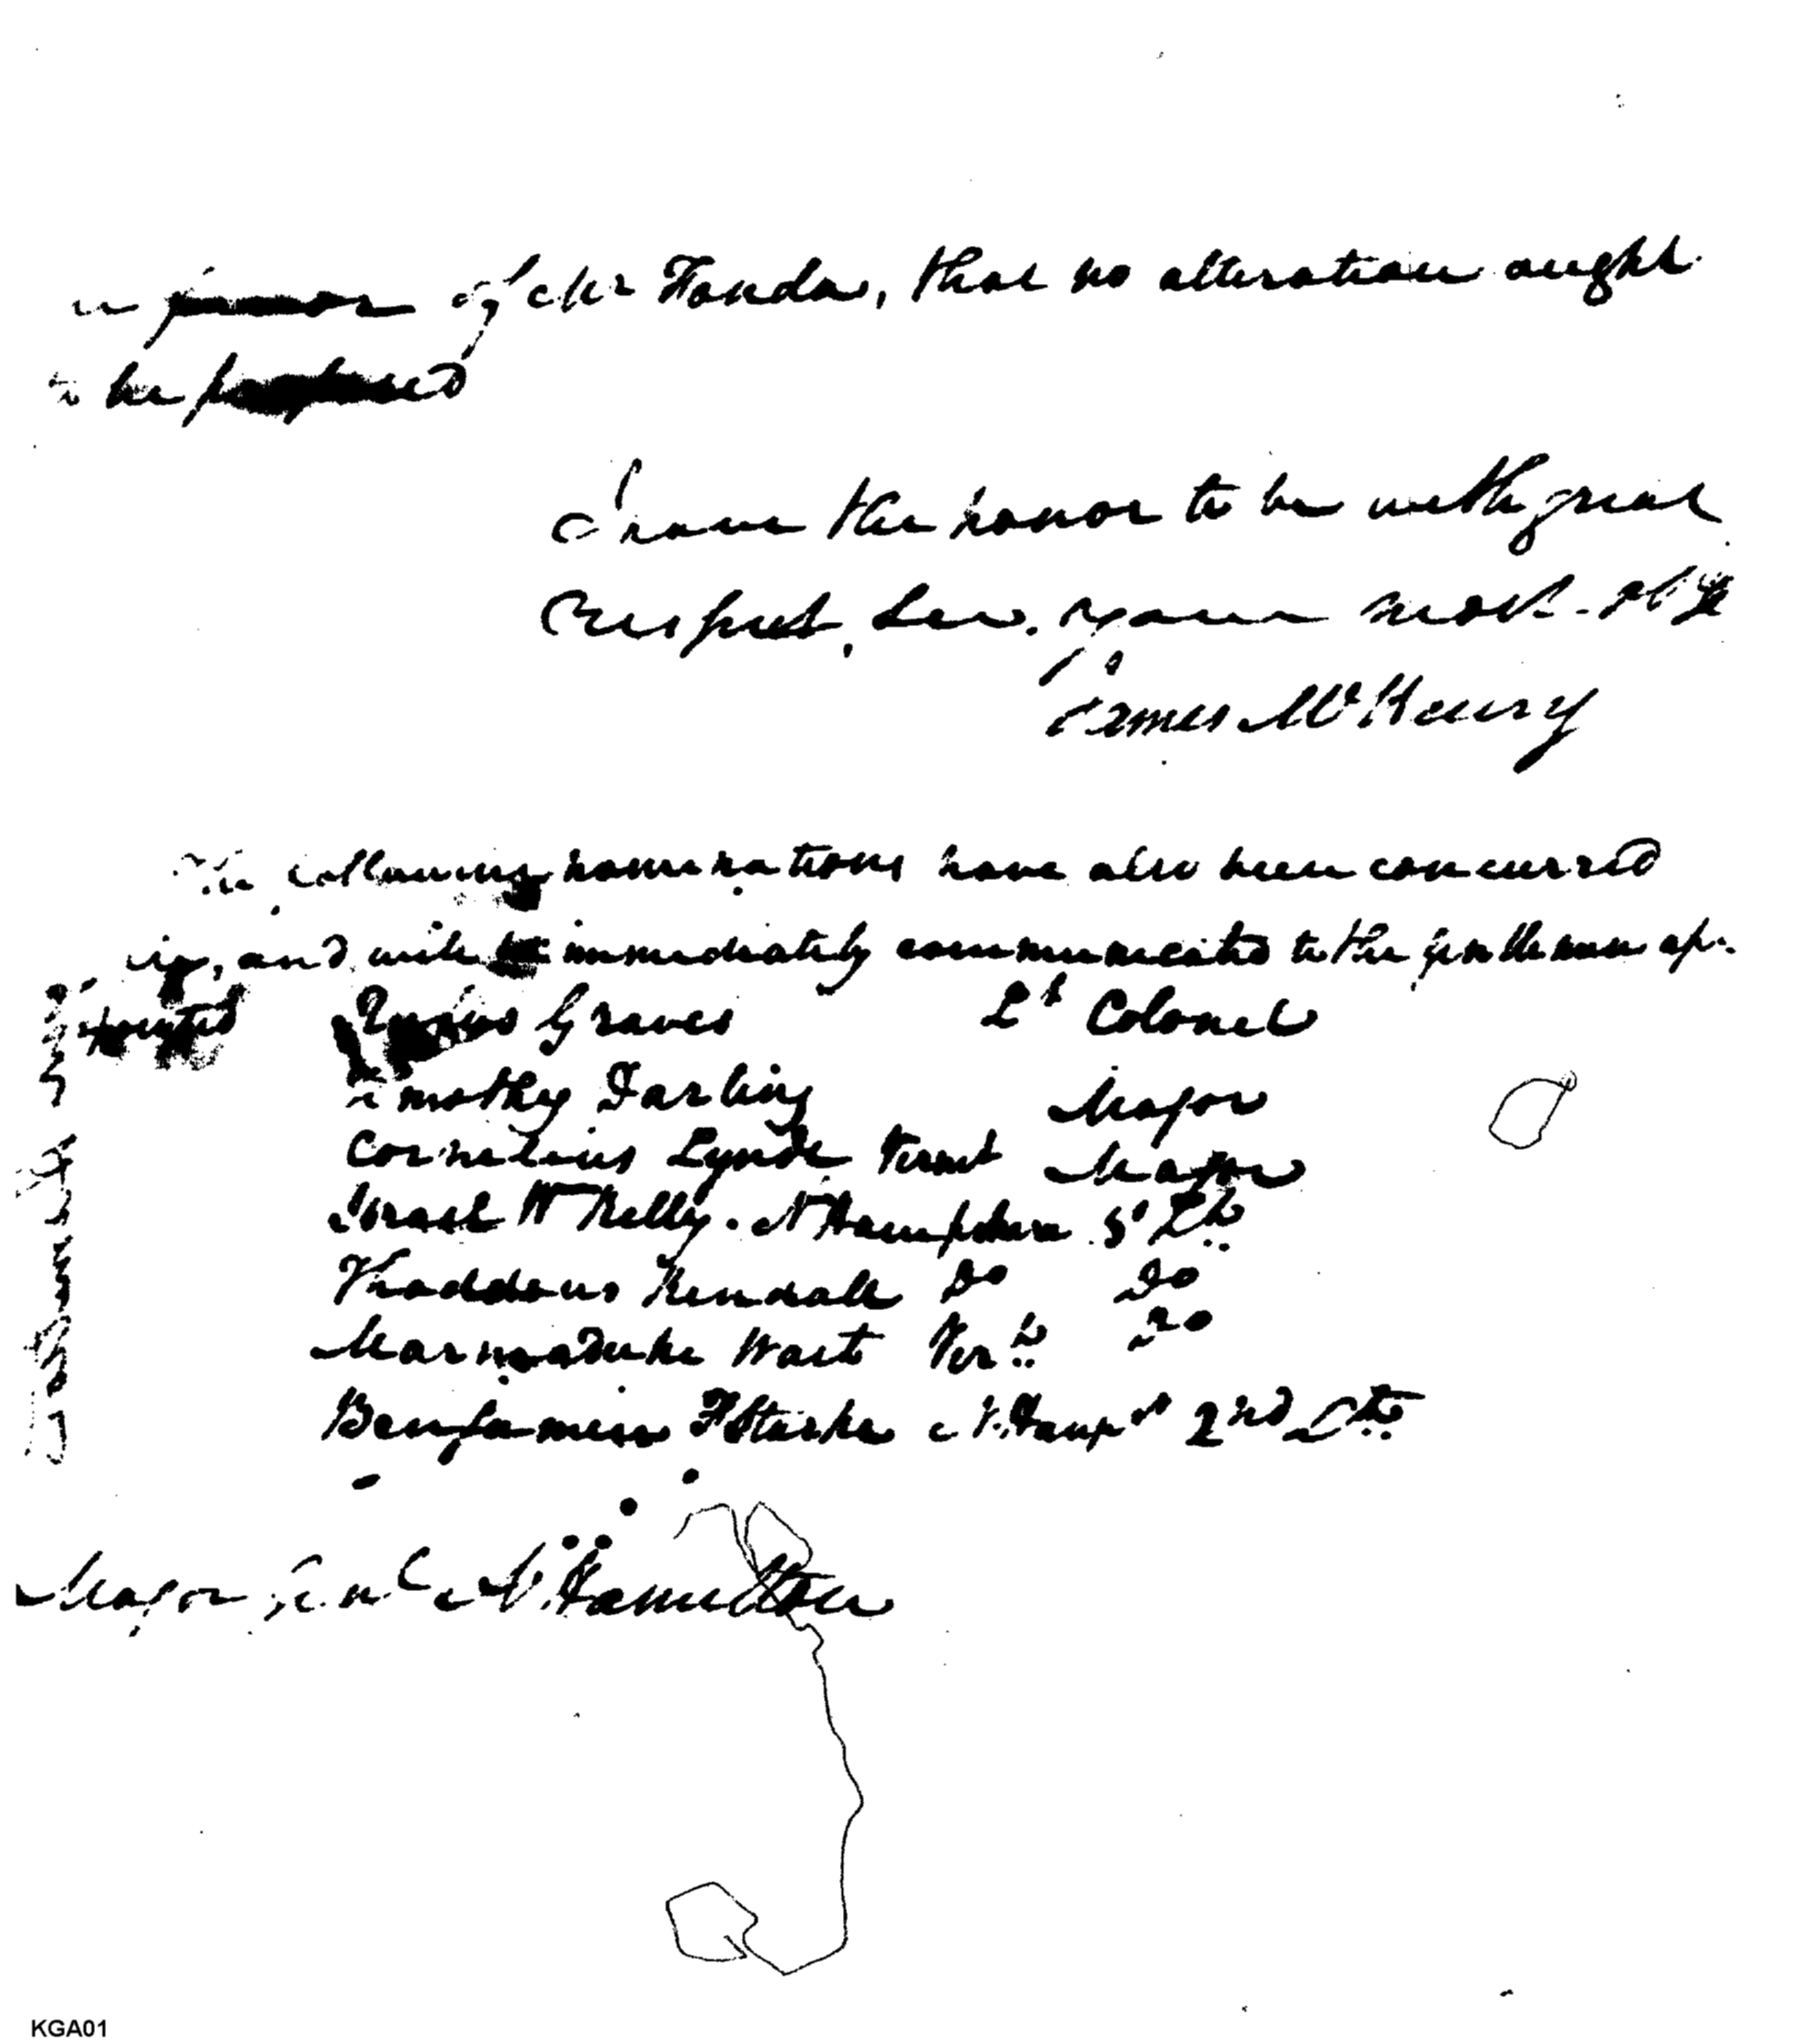 in favor of Mr Fonda, that no alteration ought
to be proposed
I have the honor to be with great
respect, Sir, your most obt
James McHenry
The following nominations have also been concurred
in, and will be immediately communicated to the gentlemen ap-
pointed Rufus Graves Lt Colonel
Timothy Darling Major
Cornelius Lynde Vermt Major
Israel W Kelly. N Hampshire Do
Thaddeus Kendall Do Do
Marmaduke Wait Vert Do
Benjamin F Starke N. Hampr 2nd Lt
Major Genl A. Hamilton
KGA01